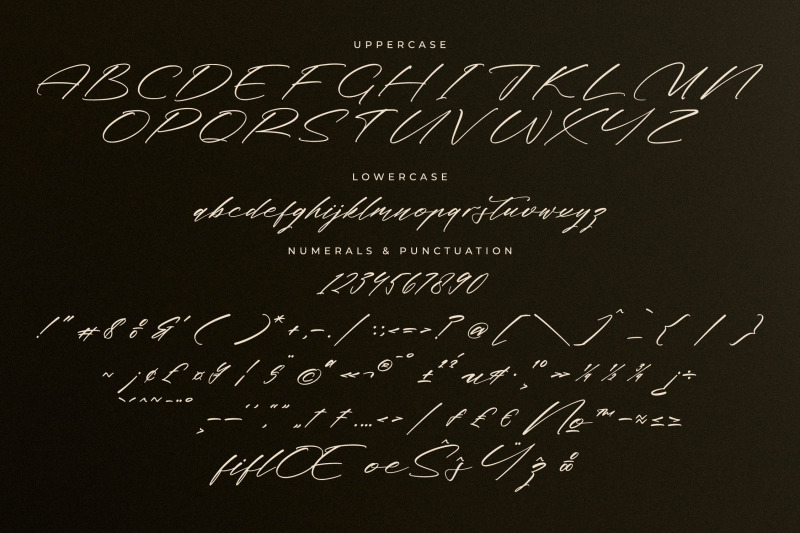 UPPERCASE
ABCDEFGHIJKLMN
OPQRSTUVWXYZ
LOWERCASE
abcdefghijklmnopqrstuvwxyz
NUMERALS & PUNCTUATION
1234567890
!"#$%&'()*+,-./:;<=>?@[\]^_`{|}
~¡¢£¤¥¦§¨©ª«¬®¯°±²³´µ¶·¸¹º»¼½¾¿÷
‚–—‘’“”„†‡…‹›⁄ƒ₤€№™−≈≤≥
fiflŒœŠšŸž